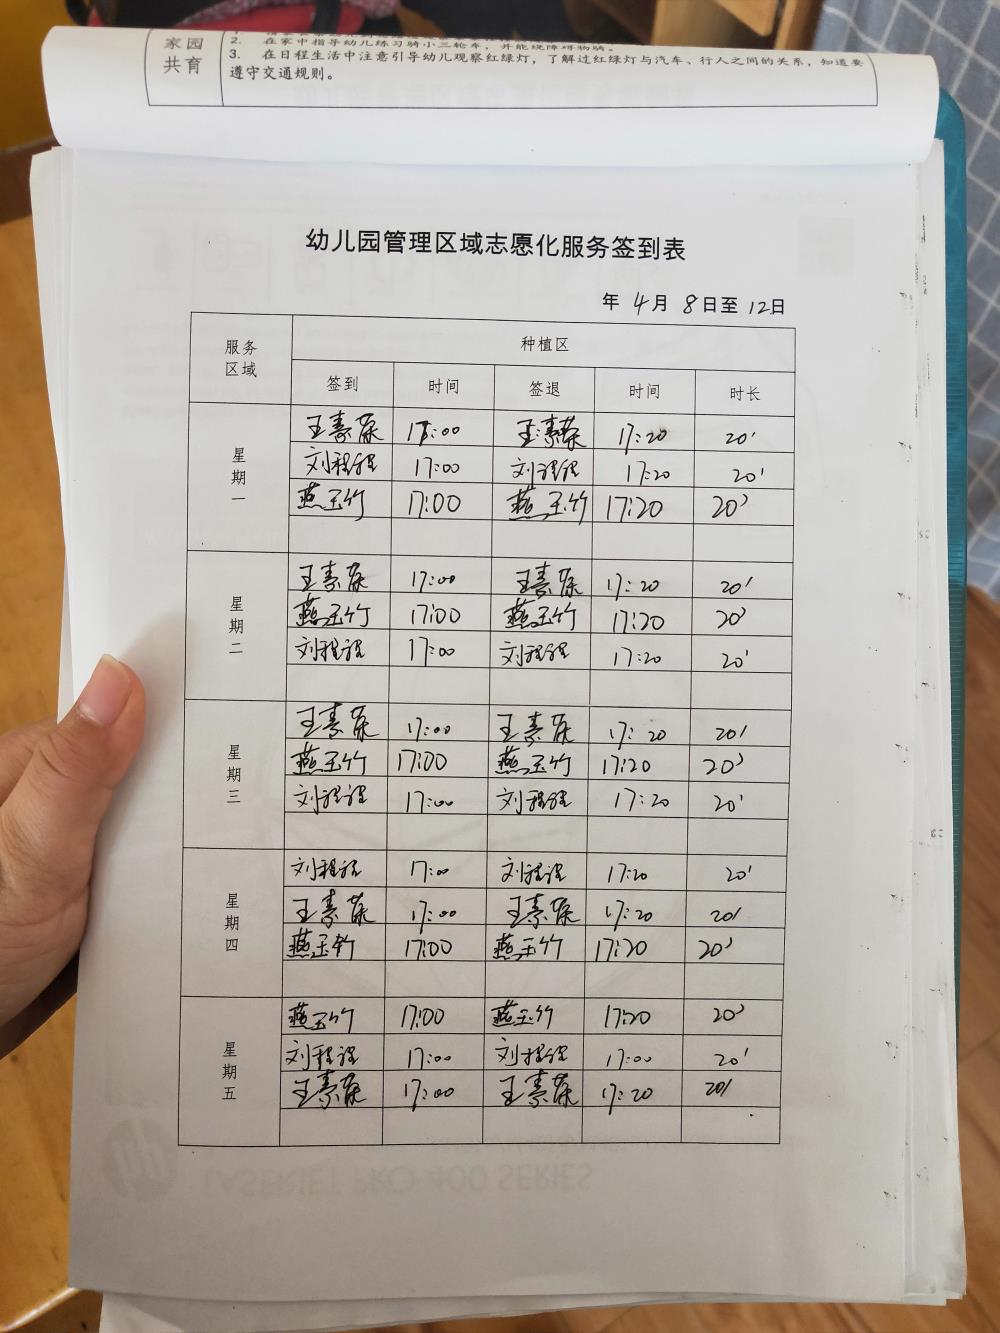 家园
共育
2. 在家中指导幼儿练习骑小三轮车，并能绕障碍物骑。
3. 在日程生活中注意引导幼儿观察红绿灯，了解过红绿灯与汽车、行人之间的关系，知道要
遵守交通规则。
幼儿园管理区域志愿化服务签到表
年 4月 8日至 12日
服务区域 种植区
签到 时间 签退 时间 时长
星期一
王素荣 17:00 王素荣 17:20 20'
刘程程 17:00 刘程程 17:20 20'
燕玉竹 17:00 燕玉竹 17:20 20'
星期二
王素荣 17:00 王素荣 17:20 20'
燕玉竹 17:00 燕玉竹 17:20 20'
刘程程 17:00 刘程程 17:20 20'
星期三
王素荣 17:00 王素荣 17:20 20'
燕玉竹 17:00 燕玉竹 17:20 20'
刘程程 17:00 刘程程 17:20 20'
星期四
刘程程 17:00 刘程程 17:20 20'
王素荣 17:00 王素荣 17:20 20'
燕玉竹 17:00 燕玉竹 17:20 20'
星期五
燕玉竹 17:00 燕玉竹 17:20 20'
刘程程 17:00 刘程程 17:00 20'
王素荣 17:00 王素荣 17:20 20'
hp LASERJET PRO 400 SERIES